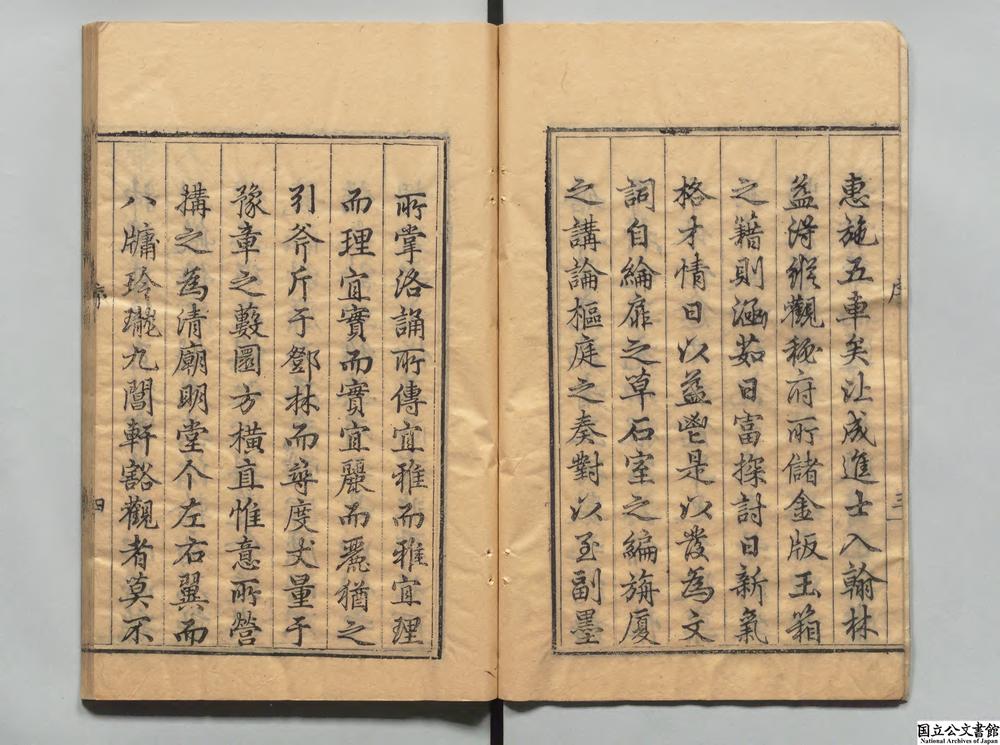 惠施五車矣泟成進士入翰林
益得縱觀秘府所儲金版玉箱
之籍則涵茹日富探討日新氣
格才情日以益鬯是以發為文
詞自綸扉之草石室之編旃廈
之講論樞庭之奏對以至副墨
序
三
所掌洛誦所傳宜雅而雅宜理
而理宜實而實宜麗而麗猶之
引斧斤于鄧林而尋度丈量于
豫章之藪圓方橫直惟意所營
搆之為清廟明堂个左右翼而
八牗玲瓏九閶軒豁觀者莫不
序
四
国立公文書館
National Archives of Japan